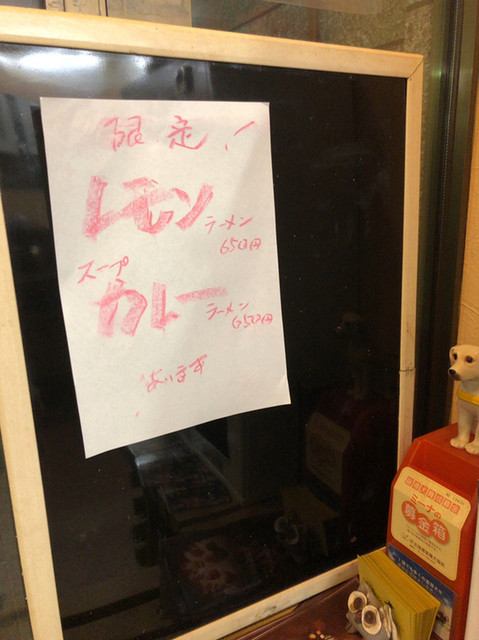 限定!
レモン
ラーメン
650円
スープ
カレー
ラーメン
650円
あります
ミーナの
募金箱